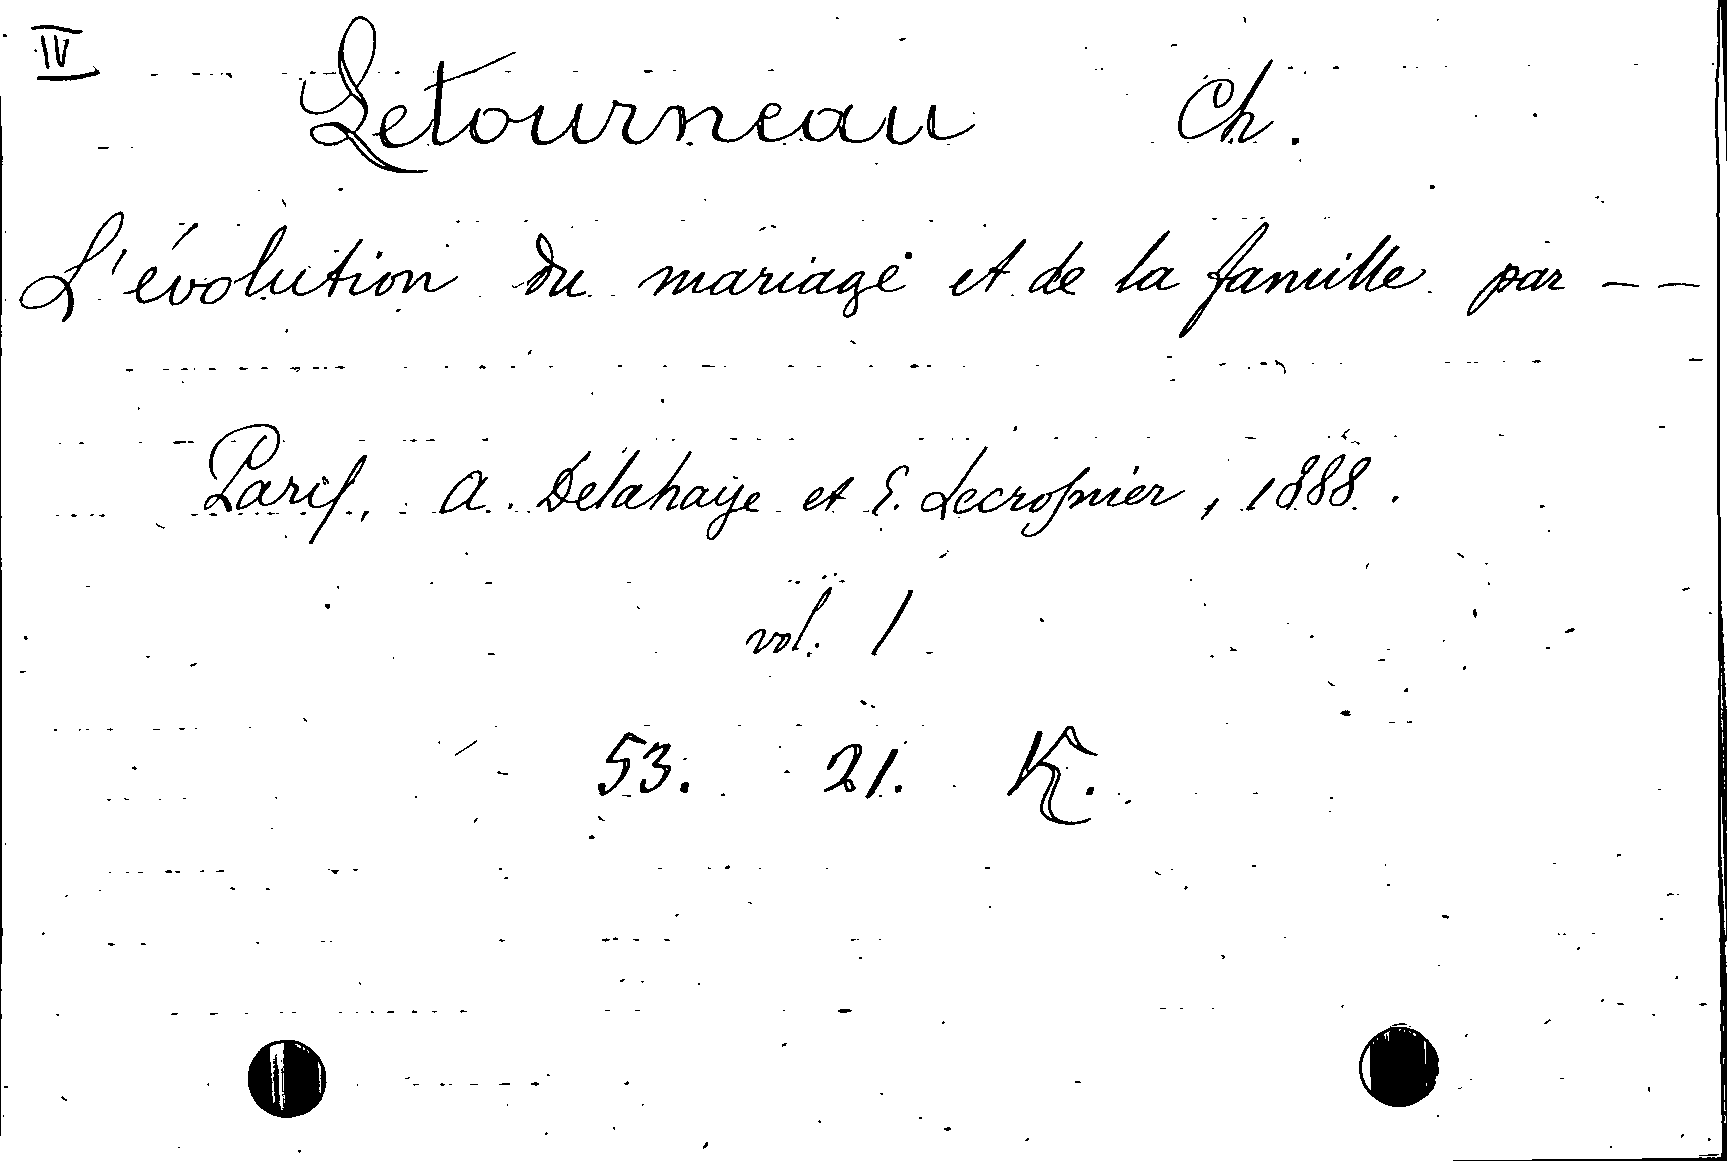 IV
Letourneau Ch.
L'évolution du mariage et de la famille par – –
Paris, A. Delahaye et E. Lecrosnier, 1888.
vol. 1
53. 21. K.